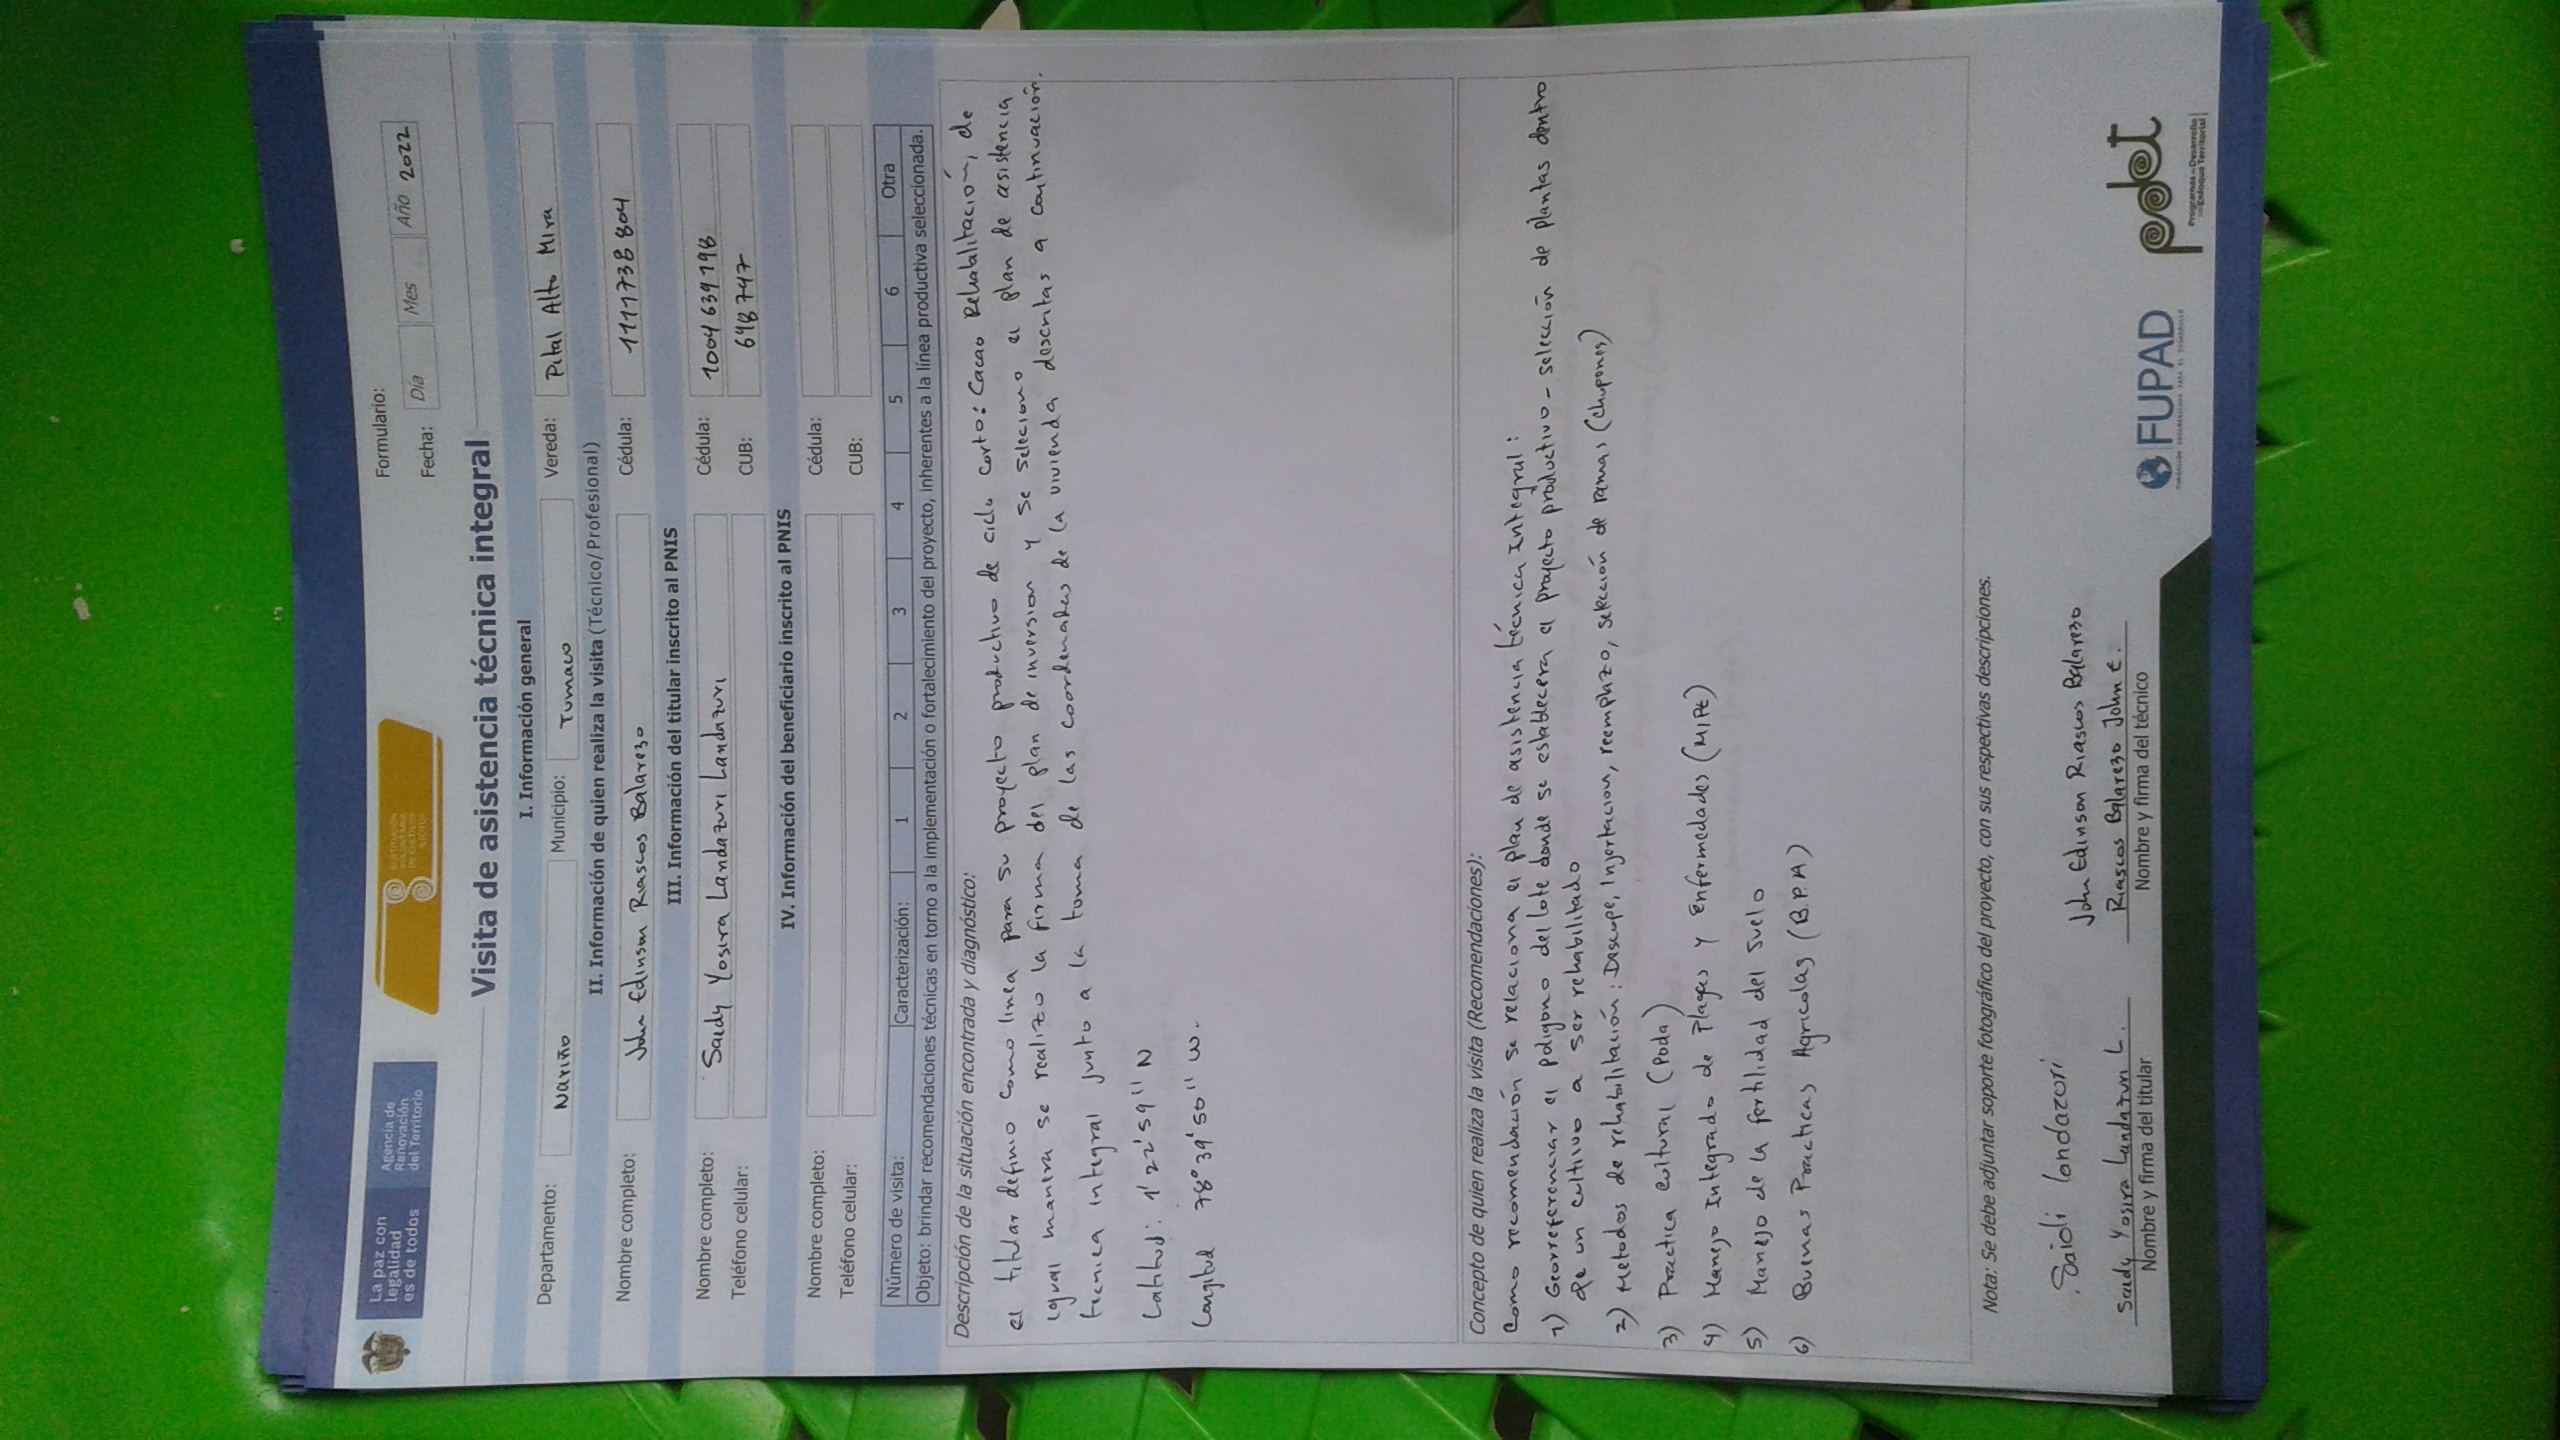 La paz con
legalidad
es de todos
Agencia de
Renovación
del Territorio
SUSTITUCIÓN
VOLUNTARIA
DE CULTIVOS
ILÍCITOS
Formulario:
Fecha: Día Mes Año 2022
Visita de asistencia técnica integral
I. Información general
Departamento: Nariño Municipio: Tumaco Vereda: Pital Alto Mira
II. Información de quien realiza la visita (Técnico/Profesional)
Nombre completo: John Edinson Riascos Balarezo Cédula: 1111738804
III. Información del titular inscrito al PNIS
Nombre completo: Saedy Yosira Landazuri Landazuri Cédula: 1004639198
Teléfono celular: CUB: 648747
IV. Información del beneficiario inscrito al PNIS
Nombre completo: Cédula:
Teléfono celular: CUB:
Número de visita: Caracterización: 1 2 3 4 5 6 Otra
Objeto: brindar recomendaciones técnicas en torno a la implementación o fortalecimiento del proyecto, inherentes a la línea productiva seleccionada.
Descripción de la situación encontrada y diagnóstico:
el titular definio como linea para su proyecto productivo de ciclo corto: Cacao Rehabilitación, de
igual manera se realizo la firma del plan de inversion y se seleciono el plan de asistencia
tecnica integral junto a la toma de las coordenadas de la vivienda descritas a continuación.
Latitud: 1'22'59" N
Longitud 78°39'50" W.
Concepto de quien realiza la visita (Recomendaciones):
Como recomendación se relaciona el plan de asistencia técnica Integral:
1) Georreferenciar el poligono del lote donde se establecera el proyecto productivo - selección de plantas dentro
de un cultivo a ser rehabilitado
2) Metodos de rehabilitación: Descupe, Injertacion, reemplazo, selección de ramas (chupones)
3) Practica cultural (Poda)
4) Manejo Integrado de Plagas y Enfermedades (MIPE)
5) Manejo de la fertilidad del suelo
6) Buenas Practicas Agricolas (B.P.A)
Nota: Se debe adjuntar soporte fotográfico del proyecto, con sus respectivas descripciones.
Saidi londazori
John Edinson Riascos Balarezo
Saedy Yosira Landazuri L.
Riascos Balarezo John E.
Nombre y firma del titular
Nombre y firma del técnico
FUPAD
FUNDACIÓN PANAMERICANA PARA EL DESARROLLO
pdet
Programas de Desarrollo
con Enfoque Territorial